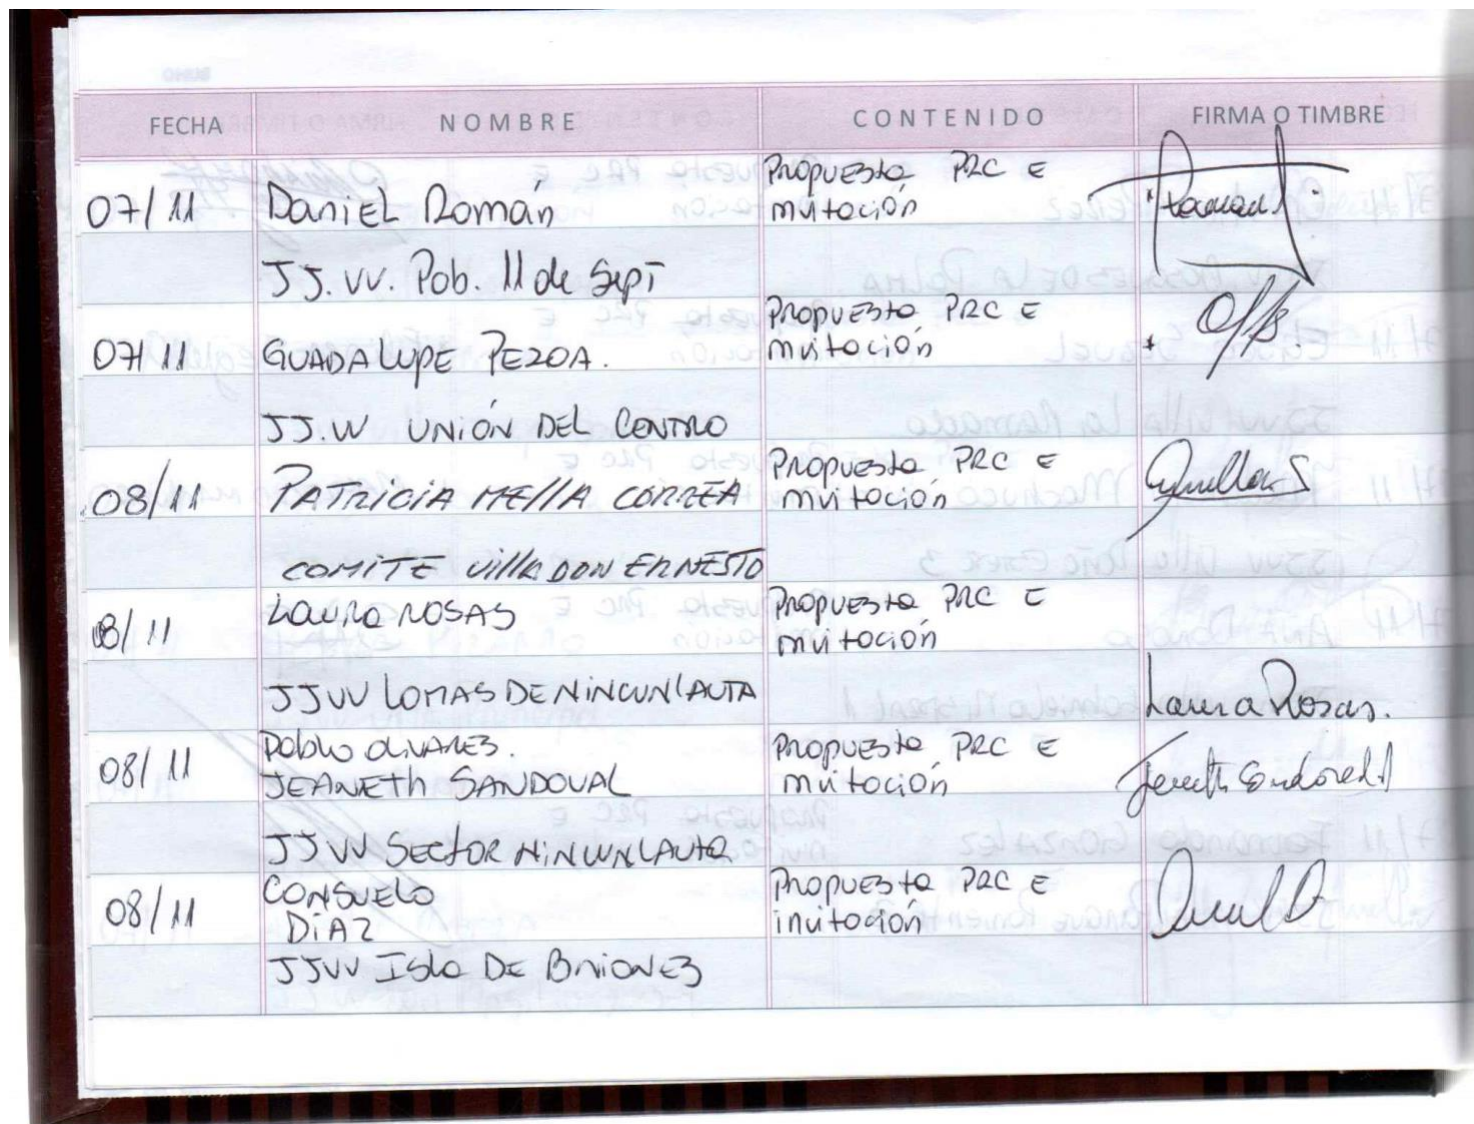 FECHA NOMBRE CONTENIDO FIRMA O TIMBRE
07/11 Daniel Román Propuesta PRC e
invitación
JJ.VV. Pob. 11 de Sept
07/11 GUADALUPE PEZOA. Propuesta PRC E
invitación
JJ.VV UNIÓN DEL CENTRO
08/11 PATRICIA MELLA CORREA Propuesta PRC e
invitación
COMITE Villa DON ERNESTO
08/11 Laura ROSAS Propuesta PRC E
invitación
JJVV LOMAS DE NINCUNLAUTA Laura Rosas.
08/11 Pablo OLIVARES. Propuesta PRC E
JEANETH SANDOVAL invitación Jeneth Sandoval
JJVV SECTOR NINCUNLAUTA
08/11 CONSUELO Propuesta PRC E
DIAZ invitación
JJVV Isla DE BRIONES